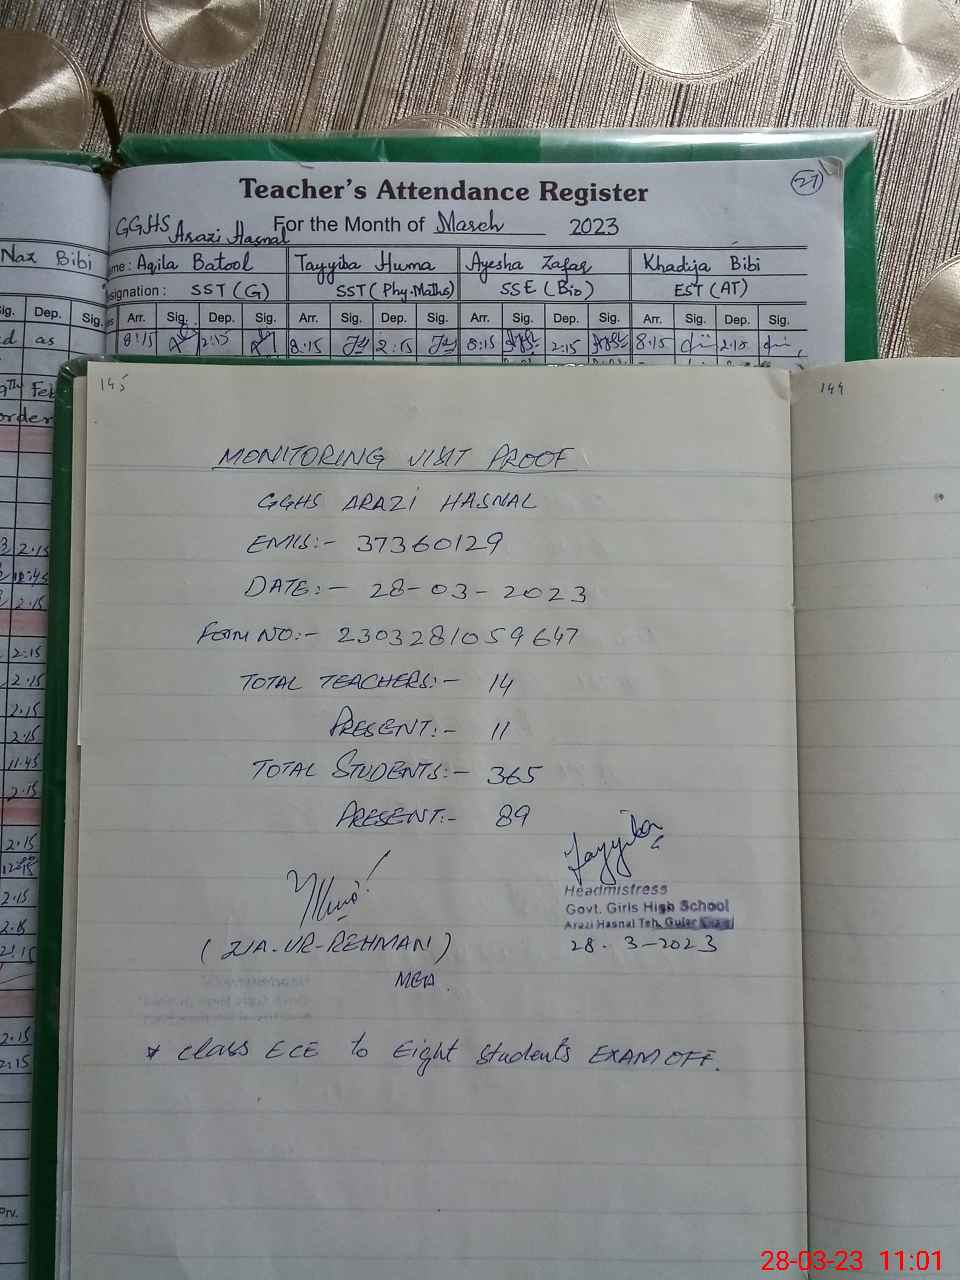 Teacher's Attendance Register
27
GGHS Arazi Hasnal
For the Month of March 2023
Naz Bibi
me: Aqila Batool Tayyiba Huma Ayesha Zafar Khadija Bibi
esignation: SST (G) SST (Phy.Maths) SSE (Bio) EST (AT)
Sig. Dep. Sig.
Arr. Sig. Dep. Sig. Arr. Sig. Dep. Sig. Arr. Sig. Dep. Sig. Arr. Sig. Dep. Sig.
8:15 2:15 8:15 2:15 8:15 2:15 8:15 2:15
as
Feb
order
2:15
2:15
2:15
2:15
2:15
2:15
11:45
2:15
2:15
2:15
2:15
2:15
2:15
2:15
Prv.
145
144
MONITORING VISIT PROOF
GGHS ARAZI HASNAL
EMIS:- 37360129
DATE:- 28-03-2023
FORM NO:- 2303281059647
TOTAL TEACHERS:- 14
PRESENT:- 11
TOTAL STUDENTS:- 365
PRESENT:- 89
Tayyiba
Headmistress
Govt. Girls High School
Arazi Hasnal Teh. Gujar
28-3-2023
(ZIA-UR-REHMAN)
MEA.
* Class ECE to Eight Students EXAM OFF.
28-03-23 11:01